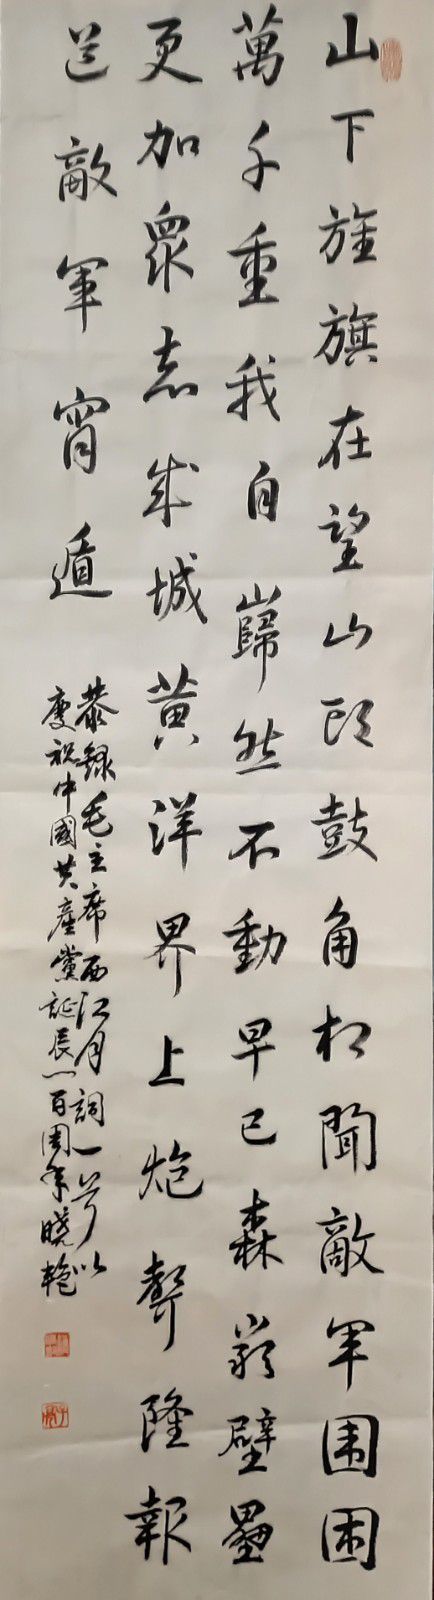 山下旌旗在望山頭鼓角相聞敵軍围困
萬千重我自巋然不動早已森嚴壁壘
更加衆志成城黄洋界上炮聲隆報
道敵軍宵遁
恭録毛主席西江月詞一首以
慶祝中國共產黨誕辰一百周年曉艳